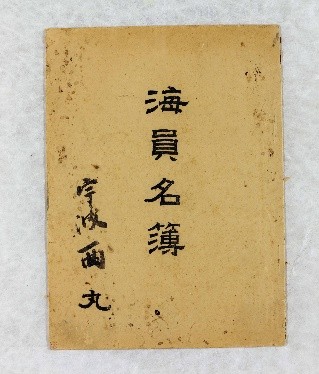 海員名簿
宇波西丸